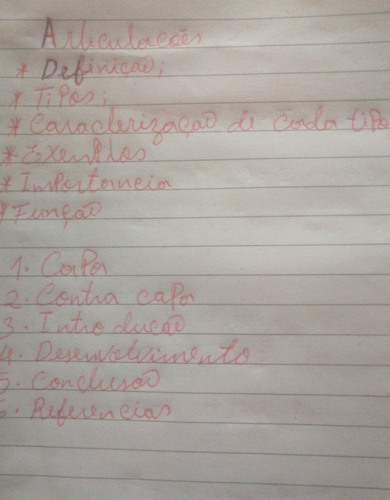 Articulacões
* Definicão;
* Tipos;
* Caracterização de cada tipo
* Exemplos
* Importancia
* Função
1. Capa
2. Contra capa
3. Introducão
4. Desenvolvimento
5. Conclusão
6. Referencias